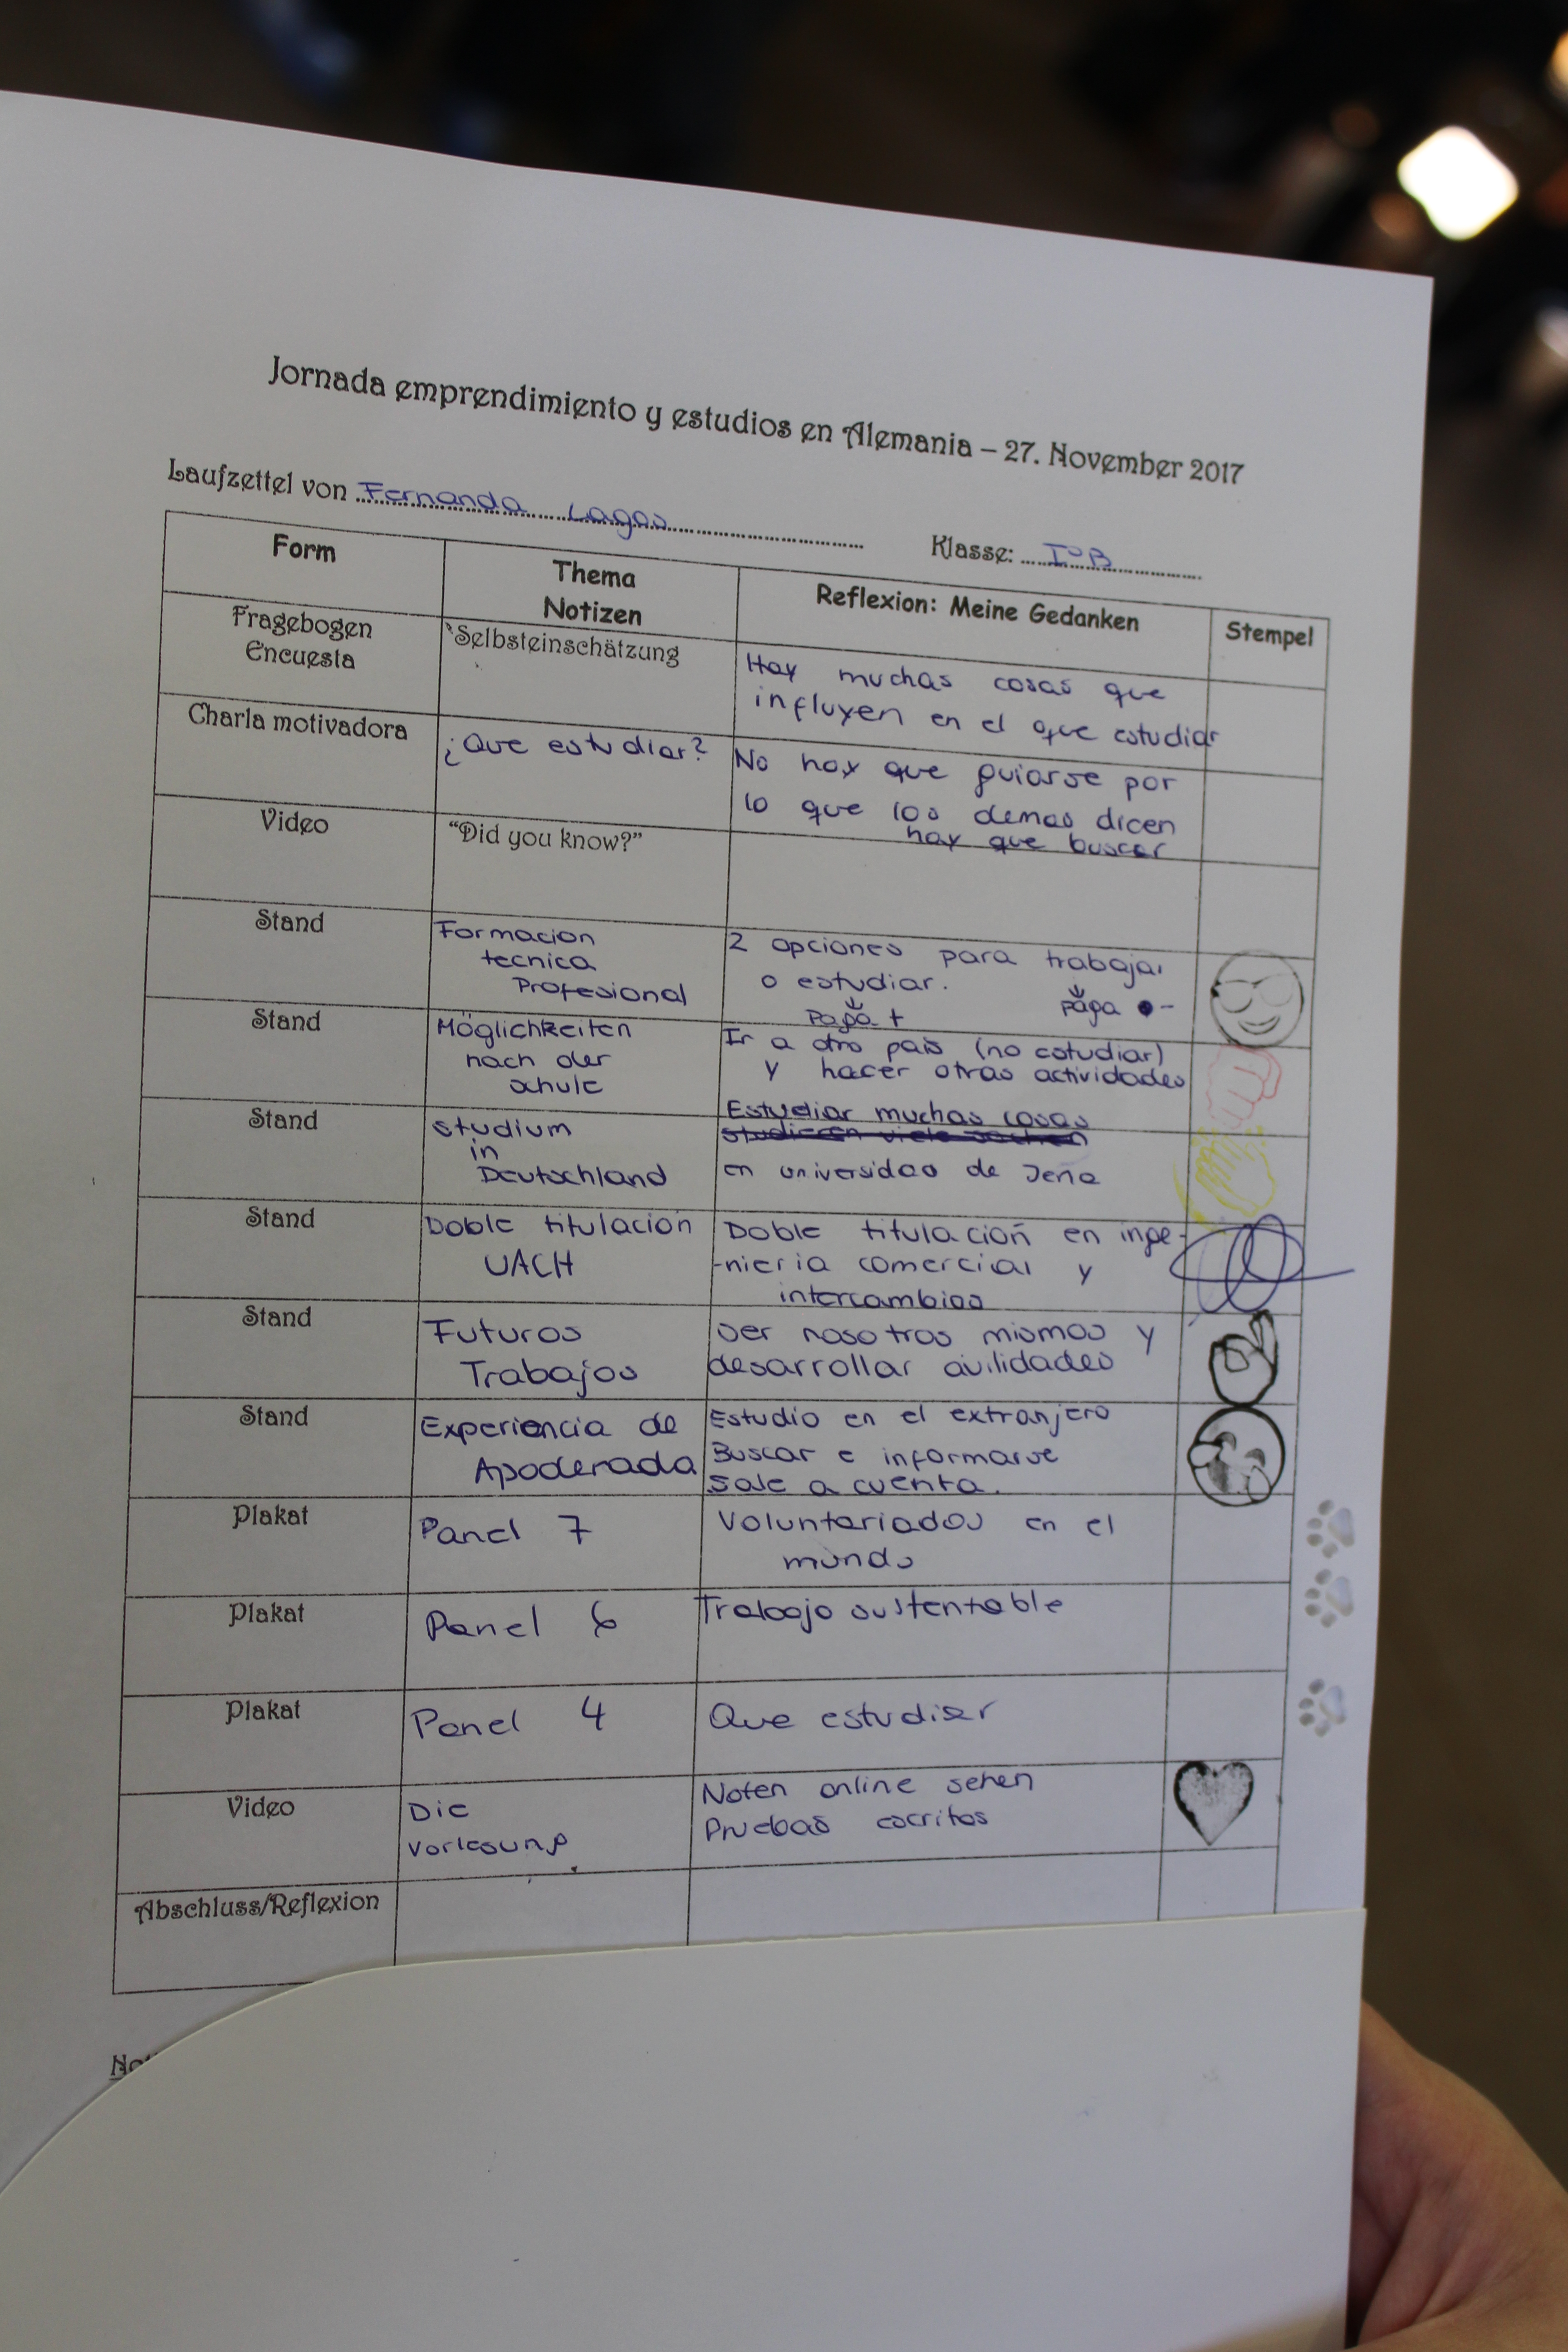 Jornada emprendimiento y estudios en Alemania – 27. November 2017
Laufzettel von Fernanda Lagos Klasse: I°B
Form
Thema
Notizen
Reflexion: Meine Gedanken
Stempel
Fragebogen
Encuesta
Selbsteinschätzung
Hay muchas cosas que
influyen en el que estudiar
Charla motivadora
¿Que estudiar?
No hay que guiarse por
lo que los demas dicen
hay que buscar
Video
“Did you know?”
Stand
Formacion
tecnica
Profesional
2 opciones para trabajar
o estudiar.
Papá + Pága -
Stand
Möglichkeiten
nach der
schule
Ir a otro pais (no estudiar)
y hacer otras actividades
Stand
Studium
in
Deutschland
Estudiar muchas cosas
studieren viele sachen
en universidad de Jena
Stand
Doble titulacion
UACH
Doble titulacion en inge-
-nieria comercial y
intercambios
Stand
Futuros
Trabajos
Ser nosotros mismos y
desarrollar avilidades
Stand
Experiencia de
Apoderada
Estudio en el extranjero
Buscar e informarse
sale a cuenta.
Plakat
Panel 7
Voluntariados en el
mundo
Plakat
Panel 6
Trabajo sustentable
Plakat
Panel 4
Que estudiar
Video
Die
Vorlesung
Noten online sehen
Pruebas escritas
Abschluss/Reflexion